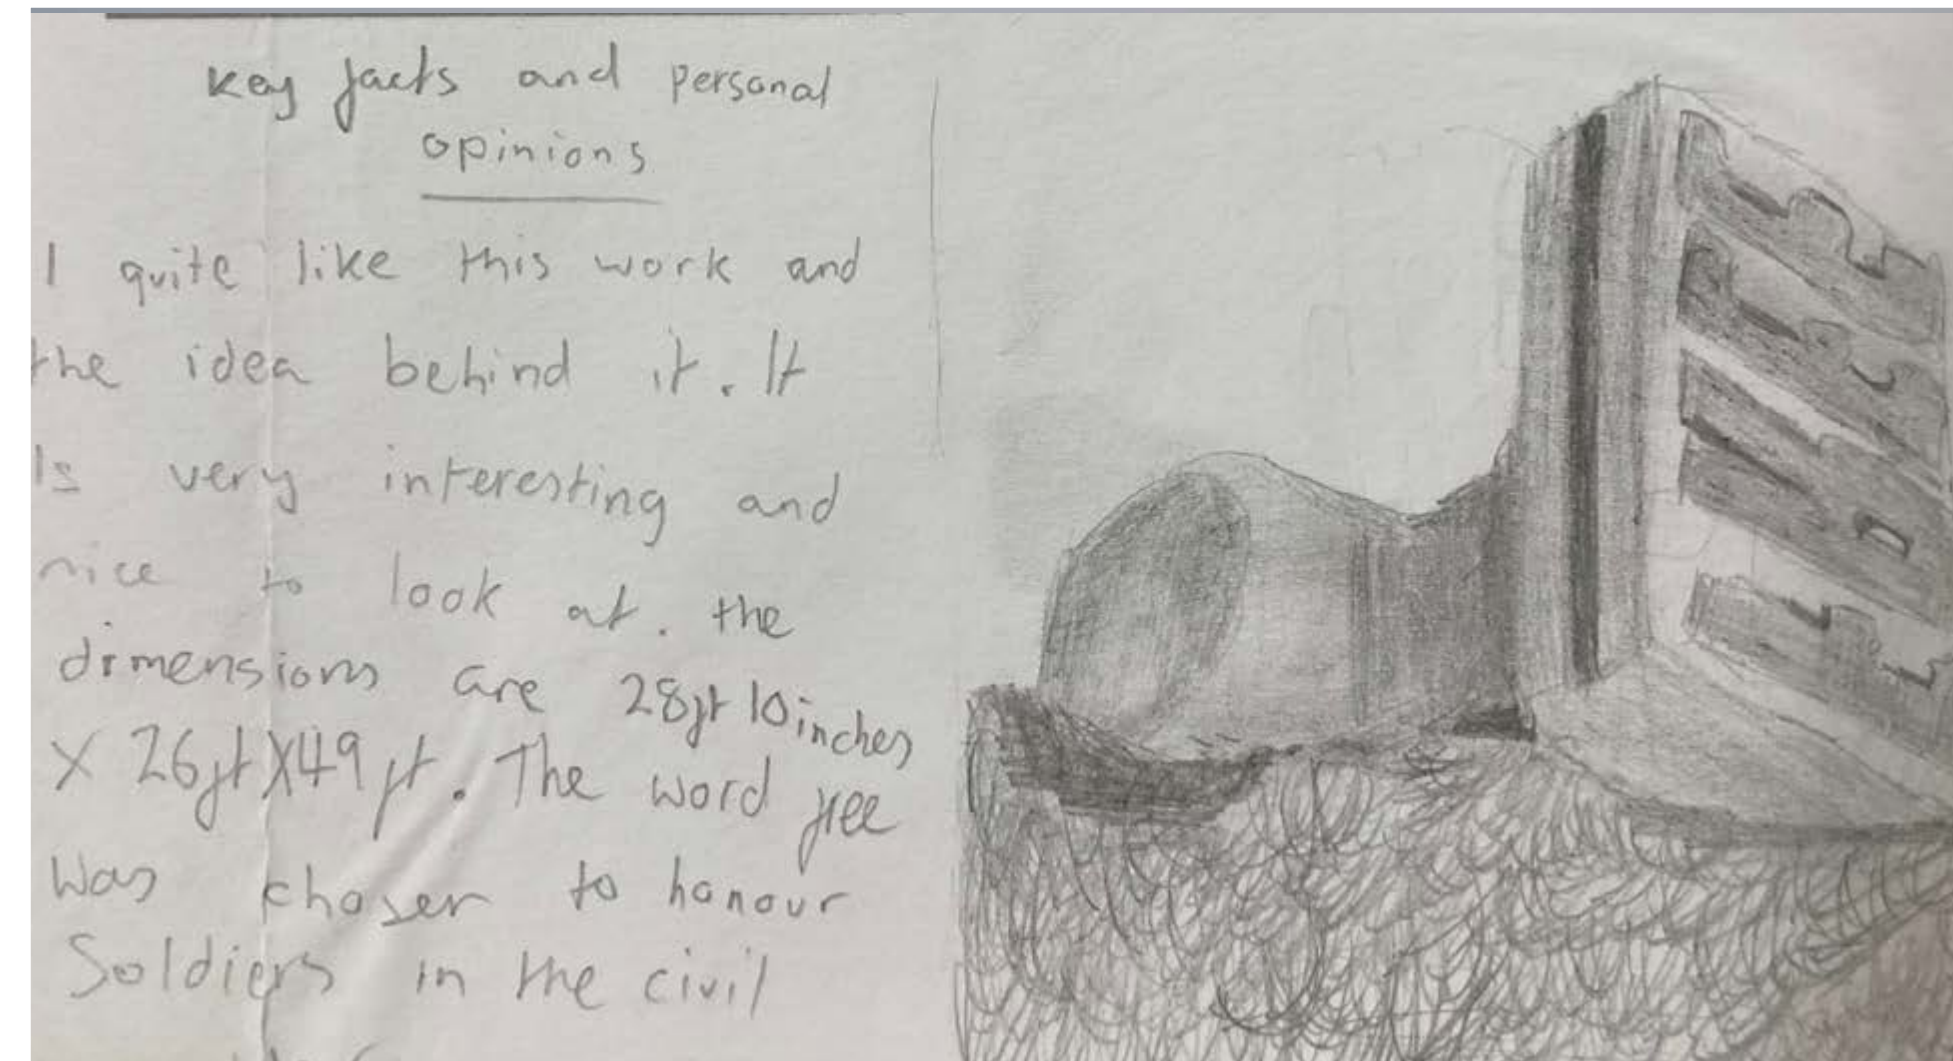 key facts and personal
opinions
I quite like this work and
the idea behind it. It
Is very interesting and
nice to look at. the
dimensions are 28ft 10inches
X 26ft X49 ft. The word free
was chosen to honour
Soldiers in the civil